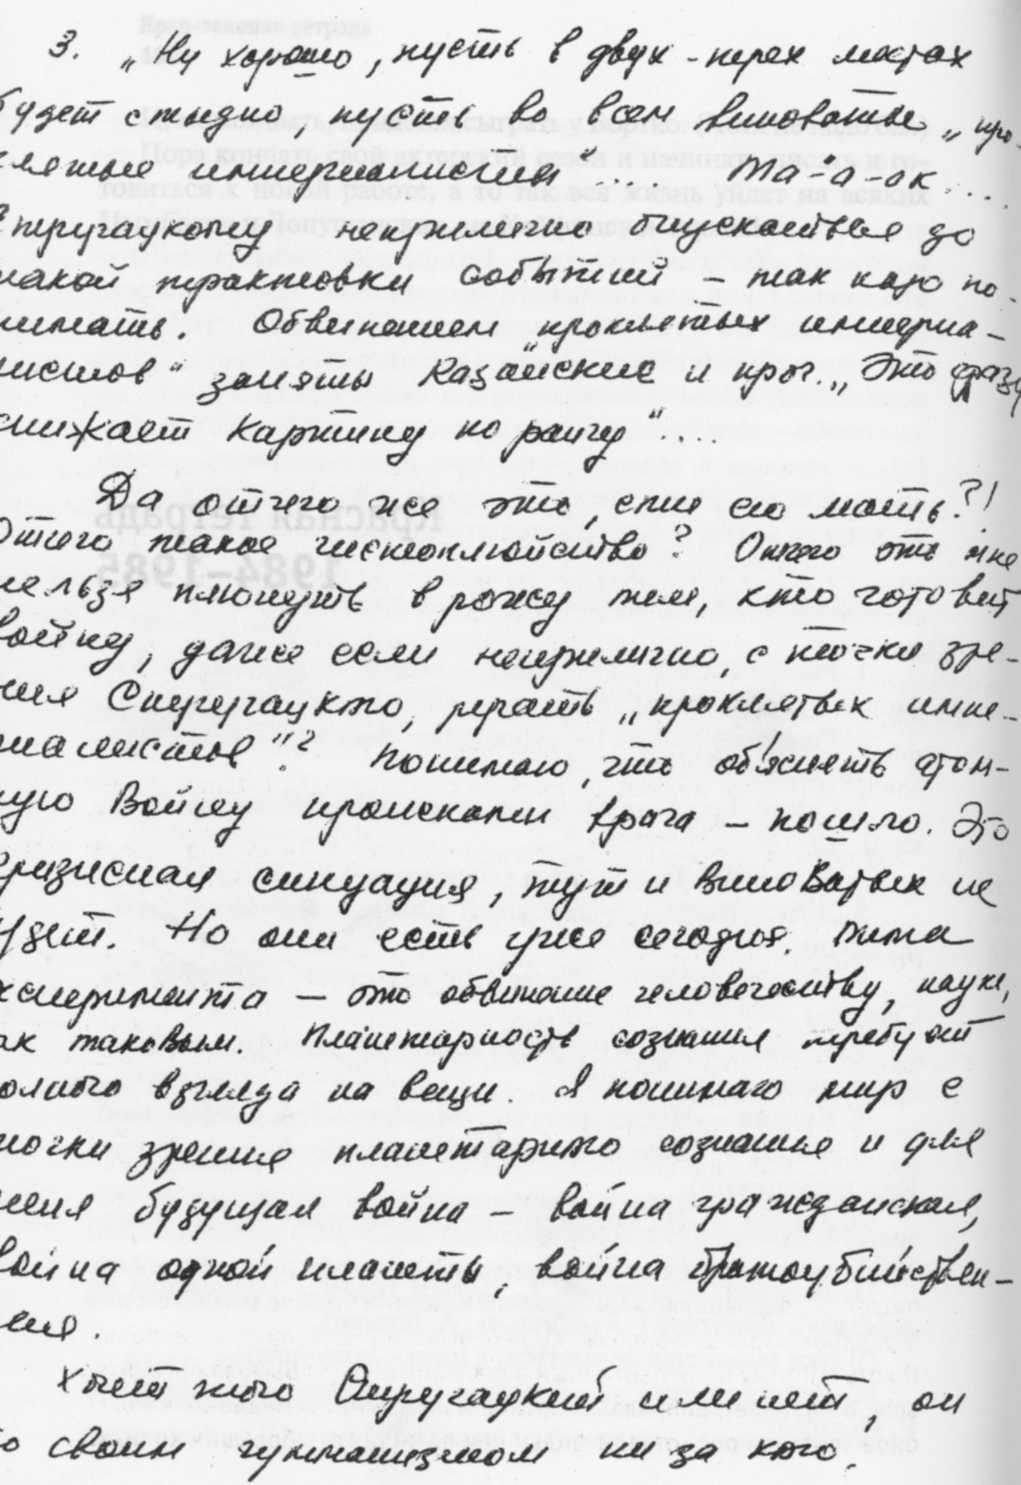 3. „Ну хорошо, пусть в двух-трех местах
будет стыдно, пусть во всем виноваты „про-
клятые империалисты“.... Та-а-ак....
Стругацкому неприлично опускаться до
такой трактовки событий – так надо по-
нимать. Обвинением „проклятых империа-
листов“ заняты Казанские и проч. „Это сразу
снижает картину по рангу“....
Да отчего же это, мать?!
Отчего такое чистоплюйство? Отчего это мне
нельзя плюнуть в рожу тем, кто готовит
войну, даже если неприлично, с точки зре-
ния Стругацкого, ругать „проклятых импе-
риалистов“? Понимаю, что объяснять атом-
ную войну происками врага – пошло. Это
кризисная ситуация, тут и виноватых не
будет. Но они есть уже сегодня. Тема
эксперимента – это обвинение человечеству, науке,
как таковым. Планетарность сознания требует
полного взгляда на вещи. Я понимаю мир с
точки зрения планетарного сознания и для
меня будущая война – война гражданская,
война одной планеты, война братоубийствен-
ная.
Хочет того Стругацкий или нет, он
со своим гуманизмом ни за кого.